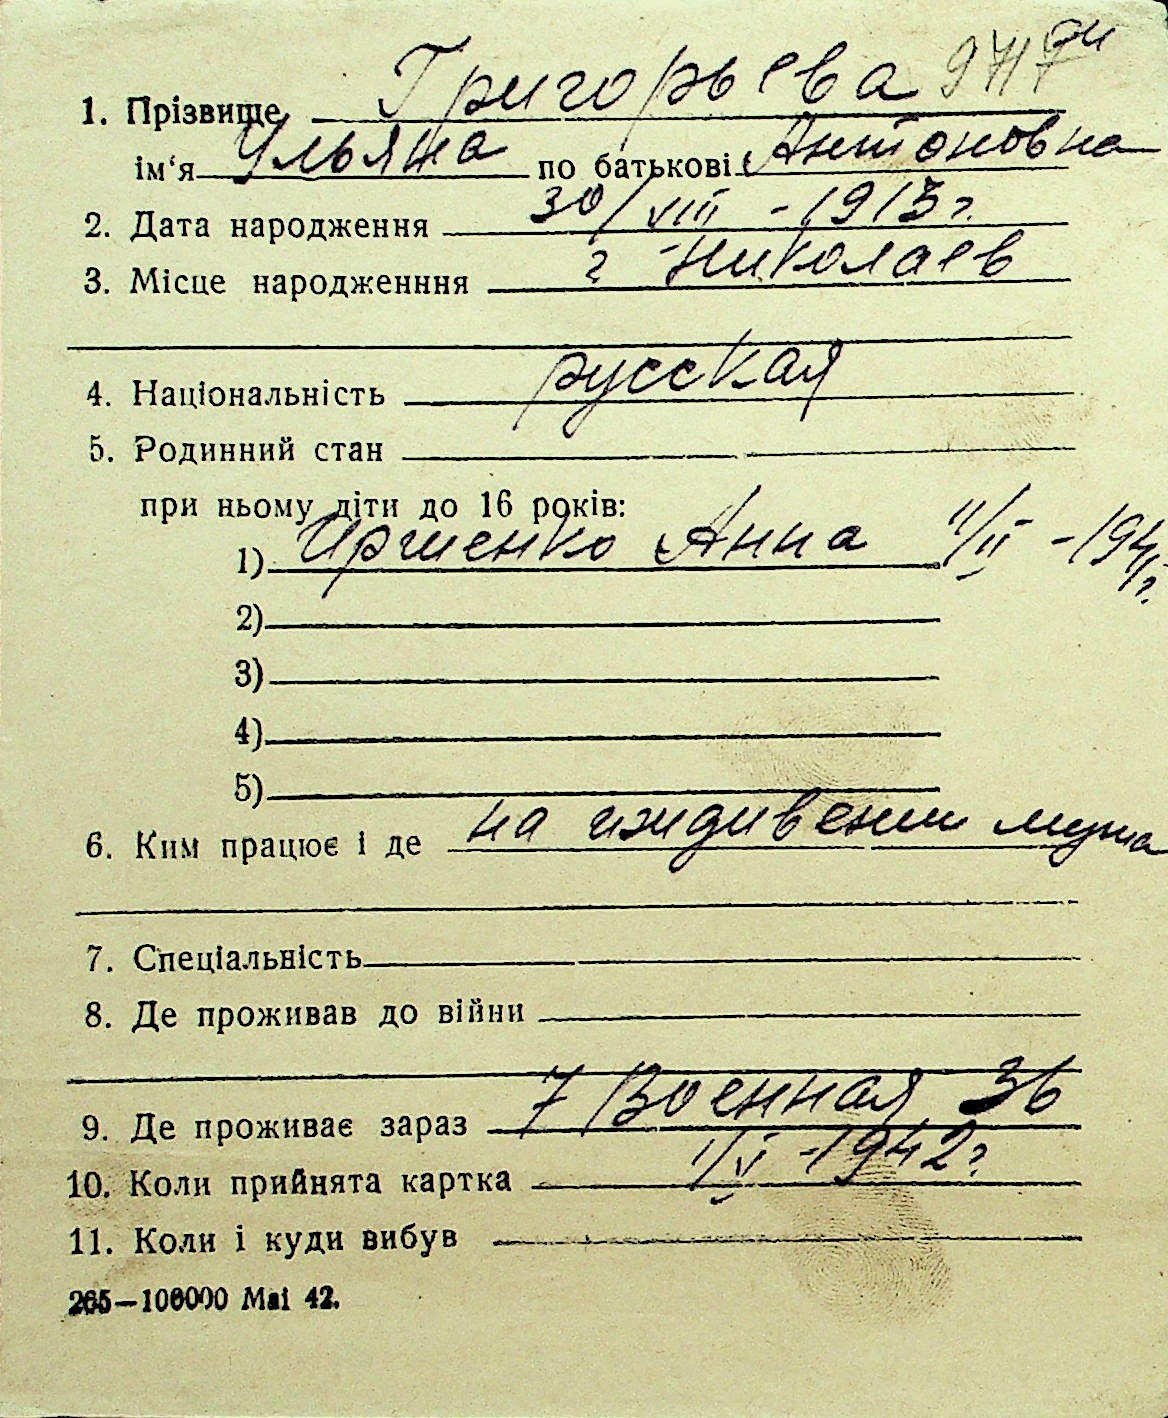 1. Прізвище Григорьева 9717
ім‘я Ульяна по батькові Антоновна
2. Дата народження 30/VIII - 1913 г.
3. Місце народженння г Николаев
4. Національність русская
5. Родинний стан
при ньому діти до 16 років:
1) Иршенко Анна 11/II - 1941 г.
2)
3)
4)
5)
6. Ким працює і де на иждивении мужа
7. Спеціальність
8. Де проживав до війни
9. Де проживає зараз 7 Военная 36
10. Коли прийнята картка 1/V - 1942 г.
11. Коли і куди вибув
265—100000 Mai 42.